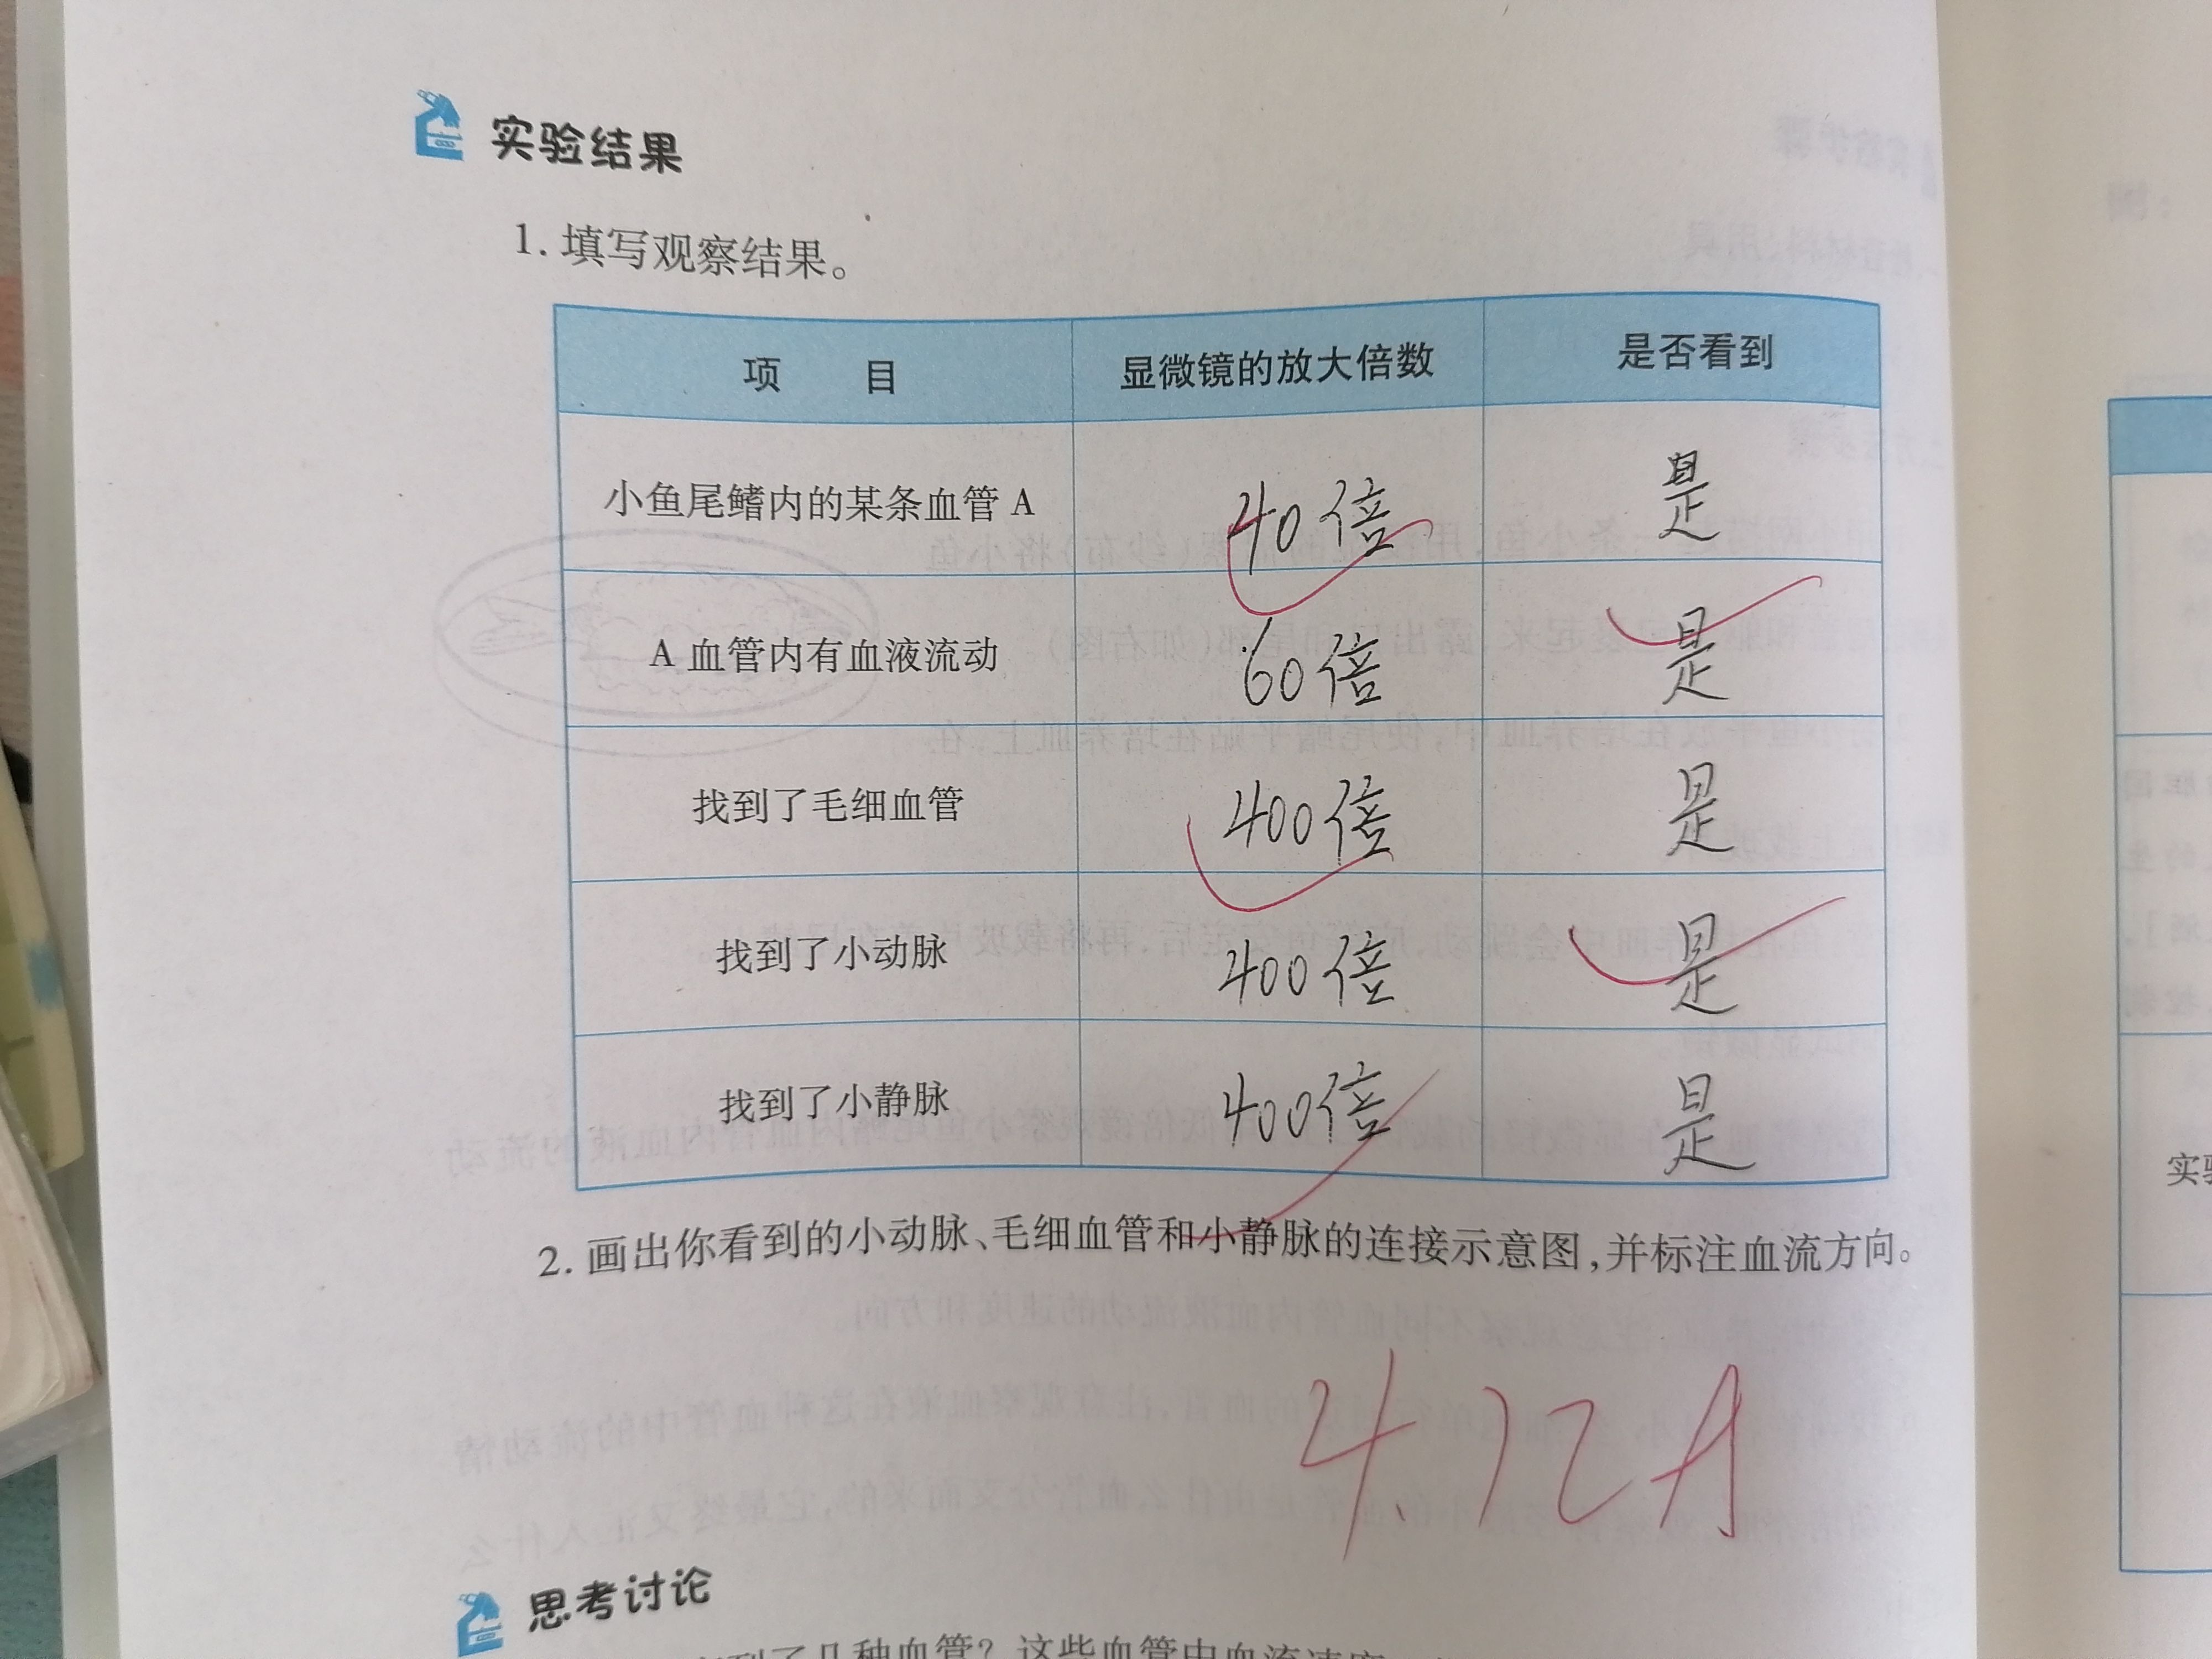 实验结果
1. 填写观察结果。
项 目 显微镜的放大倍数 是否看到
小鱼尾鳍内的某条血管 A 40倍 是
A 血管内有血液流动 60倍 是
找到了毛细血管 400倍 是
找到了小动脉 400倍 是
找到了小静脉 400倍 是
2. 画出你看到的小动脉、毛细血管和小静脉的连接示意图,并标注血流方向。
4.12A
思考讨论
到了几种血管? 这些血管中血流速度
实验